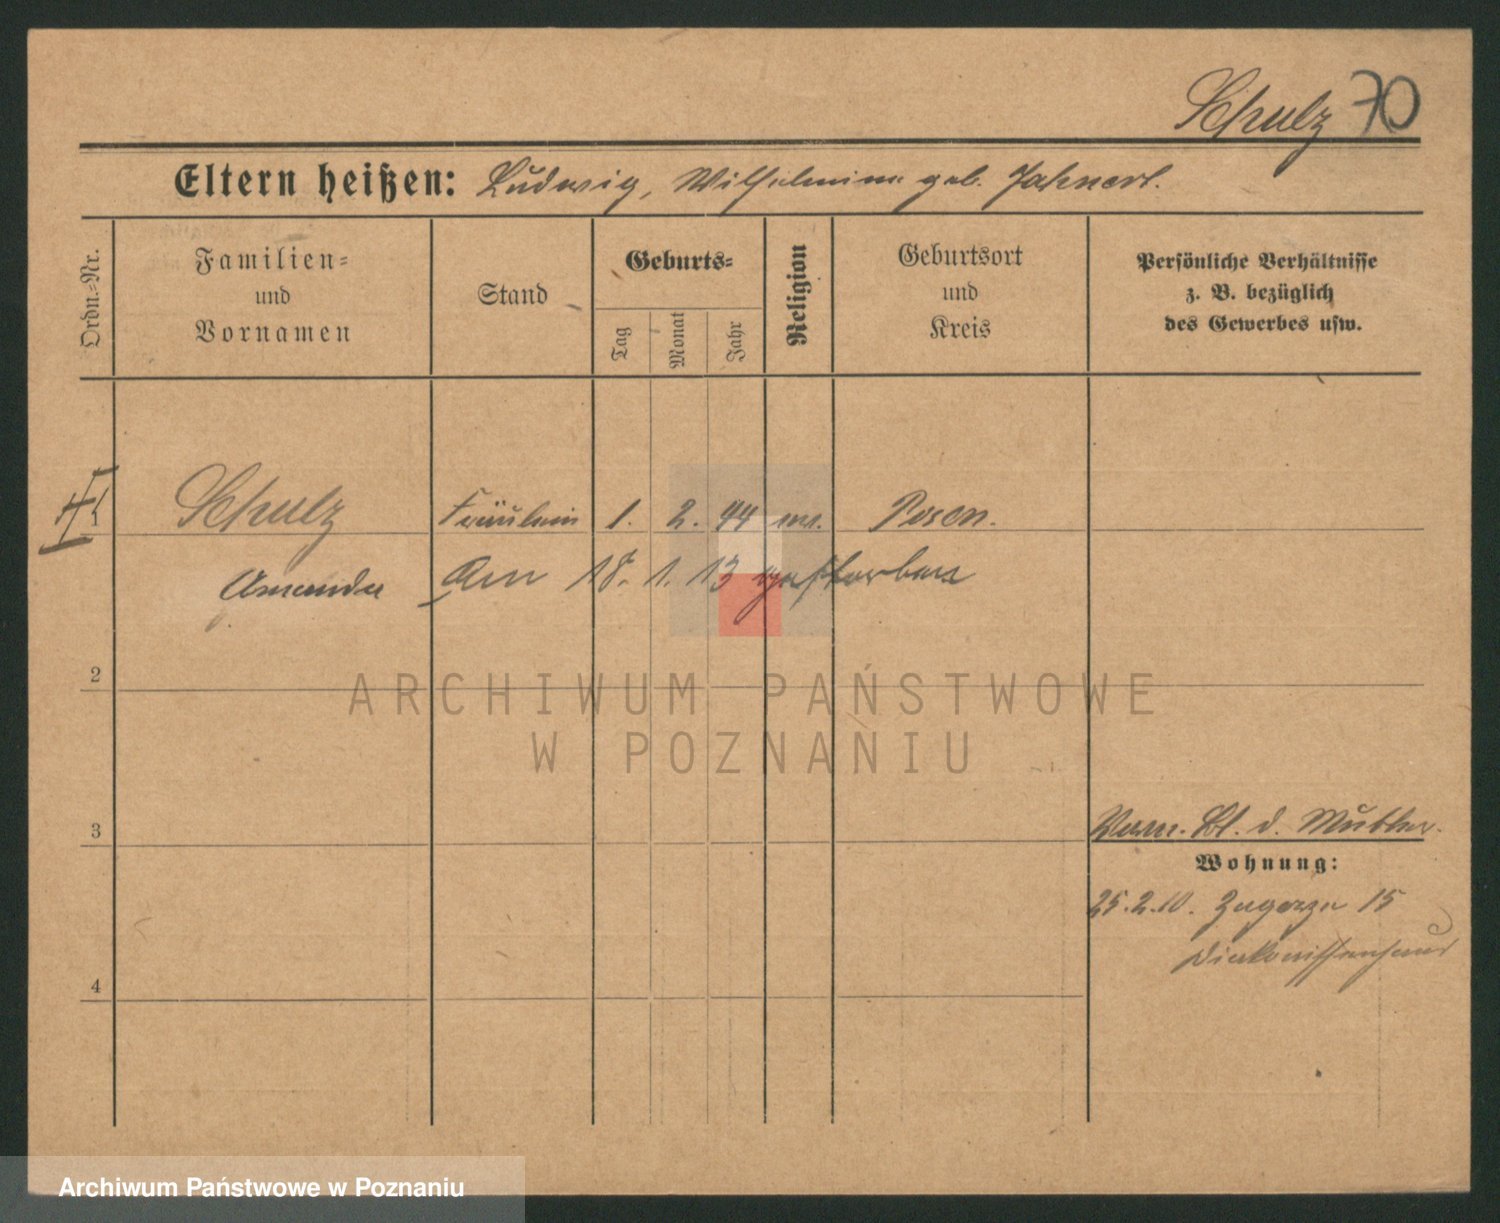 Schulz 70
Eltern heißen: Ludwig, Wilhelmine geb. Jahnert.
Ordn.-Nr.
Familien- und Vornamen
Stand
Geburts-
Tag
Monat
Jahr
Religion
Geburtsort und Kreis
Persönliche Verhältnisse
z. B. bezüglich
des Gewerbes usw.
1 Schulz Fräulein 1. 2. 44 ev. Posen.
Amanda Am 18. 1. 13 gestorben
2
ARCHIWUM PAŃSTWOWE
W POZNANIU
3
Bl. d. Mutter.
Wohnung:
25.2.10. 15
Diakonissenhaus
4
Archiwum Państwowe w Poznaniu